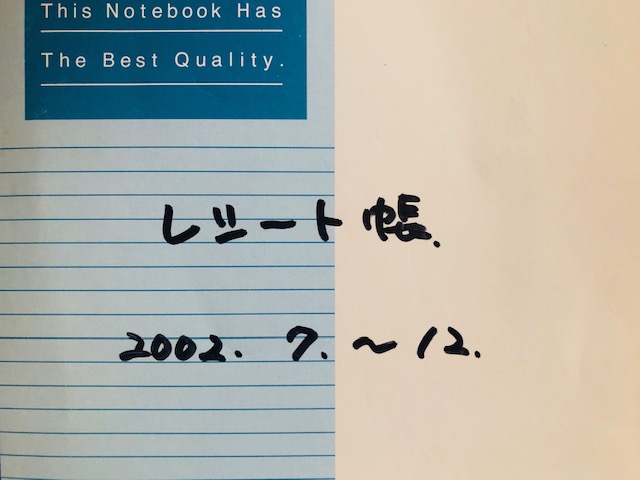 This Notebook Has
The Best Quality.
レシート帳.
2002. 7. ~ 12.